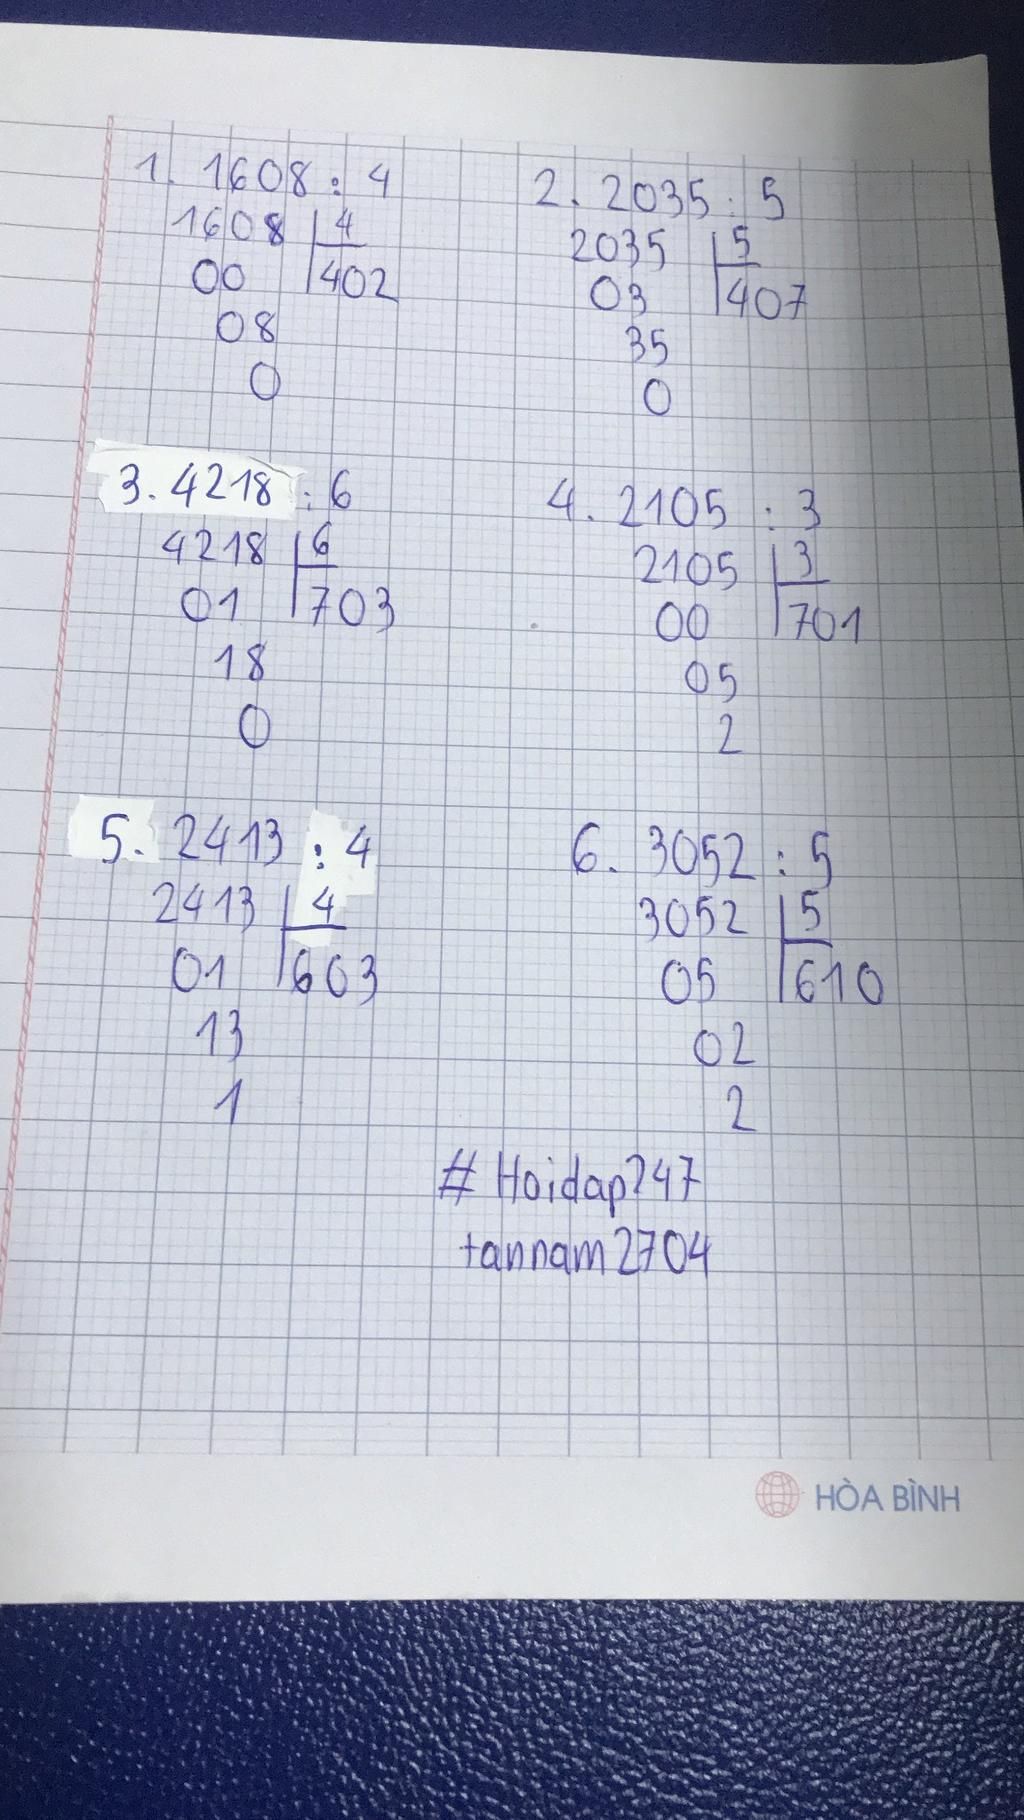 1. 1608 : 4
1608 4
00 402
08
0
2. 2035 : 5
2035 5
03 407
35
0
3. 4218 : 6
4218 6
01 703
18
0
4. 2105 : 3
2105 3
00 701
05
2
5. 2413 : 4
2413 4
01 603
13
1
6. 3052 : 5
3052 5
05 610
02
2
# Hoidap247
tannam2704
HÒA BÌNH